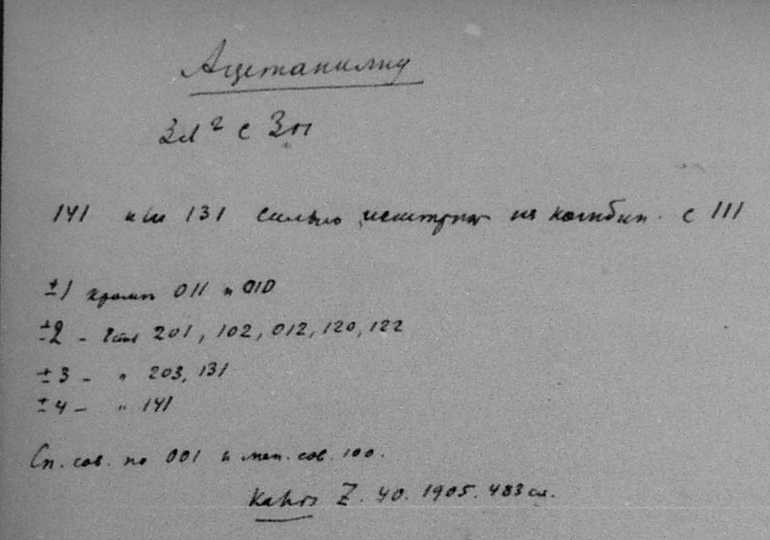 Ацетанилид
3л² с 3
141 или 131 сильно на комбин. с 111
±1 кроме 011 и 010
±2 – 201, 102, 012, 120, 122
±3 – " 203, 131
±4 – " 141
Сп. сов. по 001 и мен. сов. 100.
Z. 40. 1905. 483 сл.